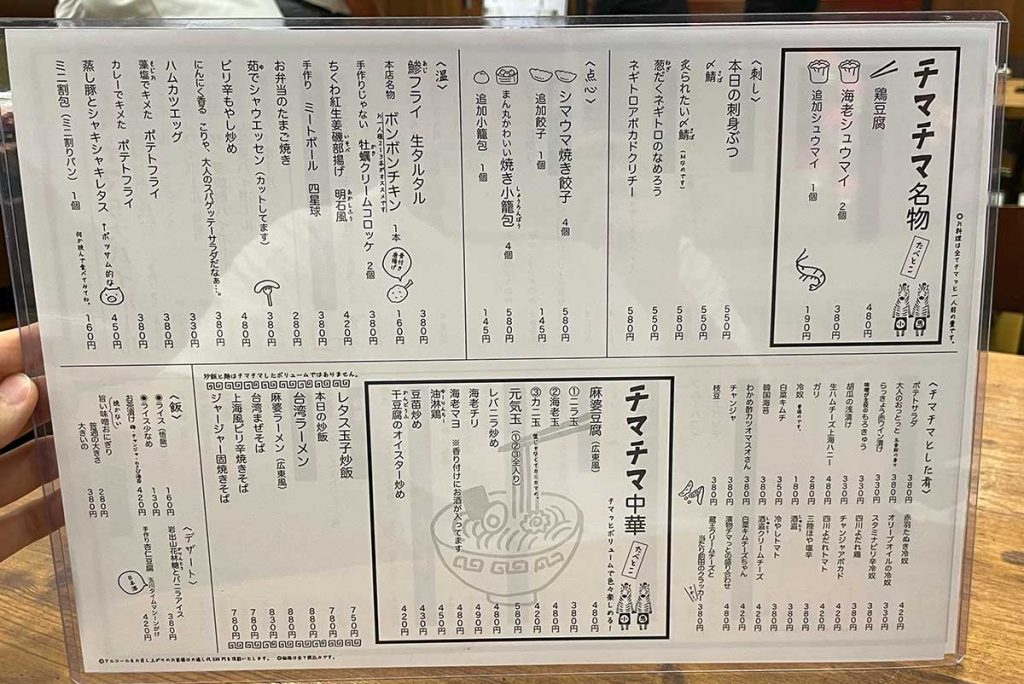 ◎お料理は全てチマッと一人前の量です。
チマチマ名物
たべとこ
鶏豆腐 480円
海老シュウマイ 2個 380円
追加シュウマイ 1個 190円
〈刺し〉
本日の刺身ぶつ 550円
〆鯖 550円
炙られたい〆鯖 (Mなのです) 580円
葱だくネギトロのなめろう 550円
ネギトロアボカドクリチー 580円
〈点心〉
シマウマ焼き餃子 4個 580円
追加餃子 1個 145円
まん丸かわいい焼き小籠包 4個 580円
追加小籠包 1個 145円
〈温〉
鯵フライ 生タルタル 380円
本店名物 ボンボンチキン 1本 160円
お一人様2〜3本がオススメです
骨付き唐揚げ
手作りじゃない 牡蠣クリームコロッケ 2個 380円
ちくわ紅生姜磯部揚げ 明石風 420円
手作り ミートボール 四星球 380円
お弁当のたまご焼き 280円
茹でシャウエッセン(カットしてます) 480円
ピリ辛もやし炒め 380円
にんにく香る こりゃ、大人のスパゲッテーサラダだなぁ…。 330円
ハムカツエッグ 380円
藻塩でキメた ポテトフライ 380円
カレーでキメた ポテトフライ 380円
蒸し豚とシャキシャキレタス 450円
↑ポッサム的な
ミニ割包(ミニ割りパン) 1個 160円
何か挟んで食べてみてね。
〈チマチマとした肴〉
ポテトサラダ 380円
大人のおっとっと 390円
らっきょう赤ワイン漬け 330円
もろきゅう 330円
胡瓜の浅漬け 330円
生ハムチーズ上海ハニー 480円
ガリ 280円
冷奴 180円
白菜キムチ 350円
韓国海苔 180円
わかめ酢カツオマスオさん 380円
チャンジャ 380円
枝豆 380円
赤羽たぬき冷奴 420円
オリーブオイルの冷奴 380円
スタミナピリ辛冷奴 330円
四川よだれ鶏 380円
チャンジャアボカド 420円
四川よだれトマト 420円
三陸ほや塩辛 380円
酒盗 380円
冷やしトマト 380円
酒盗クリームチーズ 380円
白菜キムチーズちゃん 420円
漬物チマっとの盛り合わせ 480円
蔵王クリームチーズと
当たり前田のクラッカー 380円
チマチマ中華
たべとこ
チマッとボリュームで色々楽しめる!
麻婆豆腐(広東風) 480円
①ニラ玉 380円
②海老玉 420円
③カニ玉 420円
元気玉(①②③全入り) 580円
レバニラ炒め 480円
海老チリ 490円
海老マヨ 450円
※香り付けにお酒が入ってます
油淋鶏 430円
豆苗炒め 480円
干豆腐のオイスター炒め 420円
炒飯と麺はチマチマしたボリュームではありません。
レタス玉子炒飯 750円
本日の炒飯 780円
台湾ラーメン 880円
麻婆ラーメン(広東風) 880円
台湾まぜそば 830円
上海風ピリ辛焼きそば 780円
ジャージャー固焼きそば 780円
〈飯〉
◉ライス(悟飯) 160円
◉ライス少なめ 130円
お茶漬け 420円
焼かない
旨い味噌おにぎり
普通の大きさ 280円
大きいの 380円
〈デザート〉
岩出山花林糖とバニラアイス 380円
手作り杏仁豆腐
玉川タイムマシーンがけ 420円
日本酒
◎アルコールをお召し上がりのお客様はお通し代330円を頂戴いたします。 ◎価格は全て税込みです。